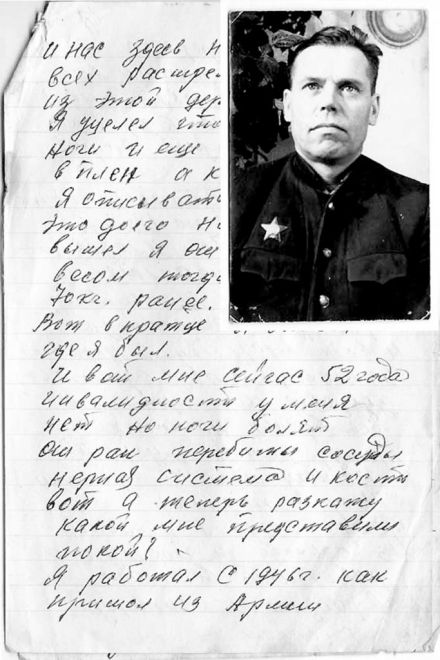 и нас здесь н
всех расстре
из этой дер
Я уцелел что
ноги и еще
в плен а к
Я описыват
это долго н
вышел я
весом тогда
70кг. ранее.
Вот в кратце
где я был.
И вот мне сейчас 52 года
инвалидности у меня
нет но ноги болят
от ран перебиты сосуды
нервная система и кости
вот а теперь разкажу
какой мне представили
покой?
Я работал с 1946г. как
пришол из Армии